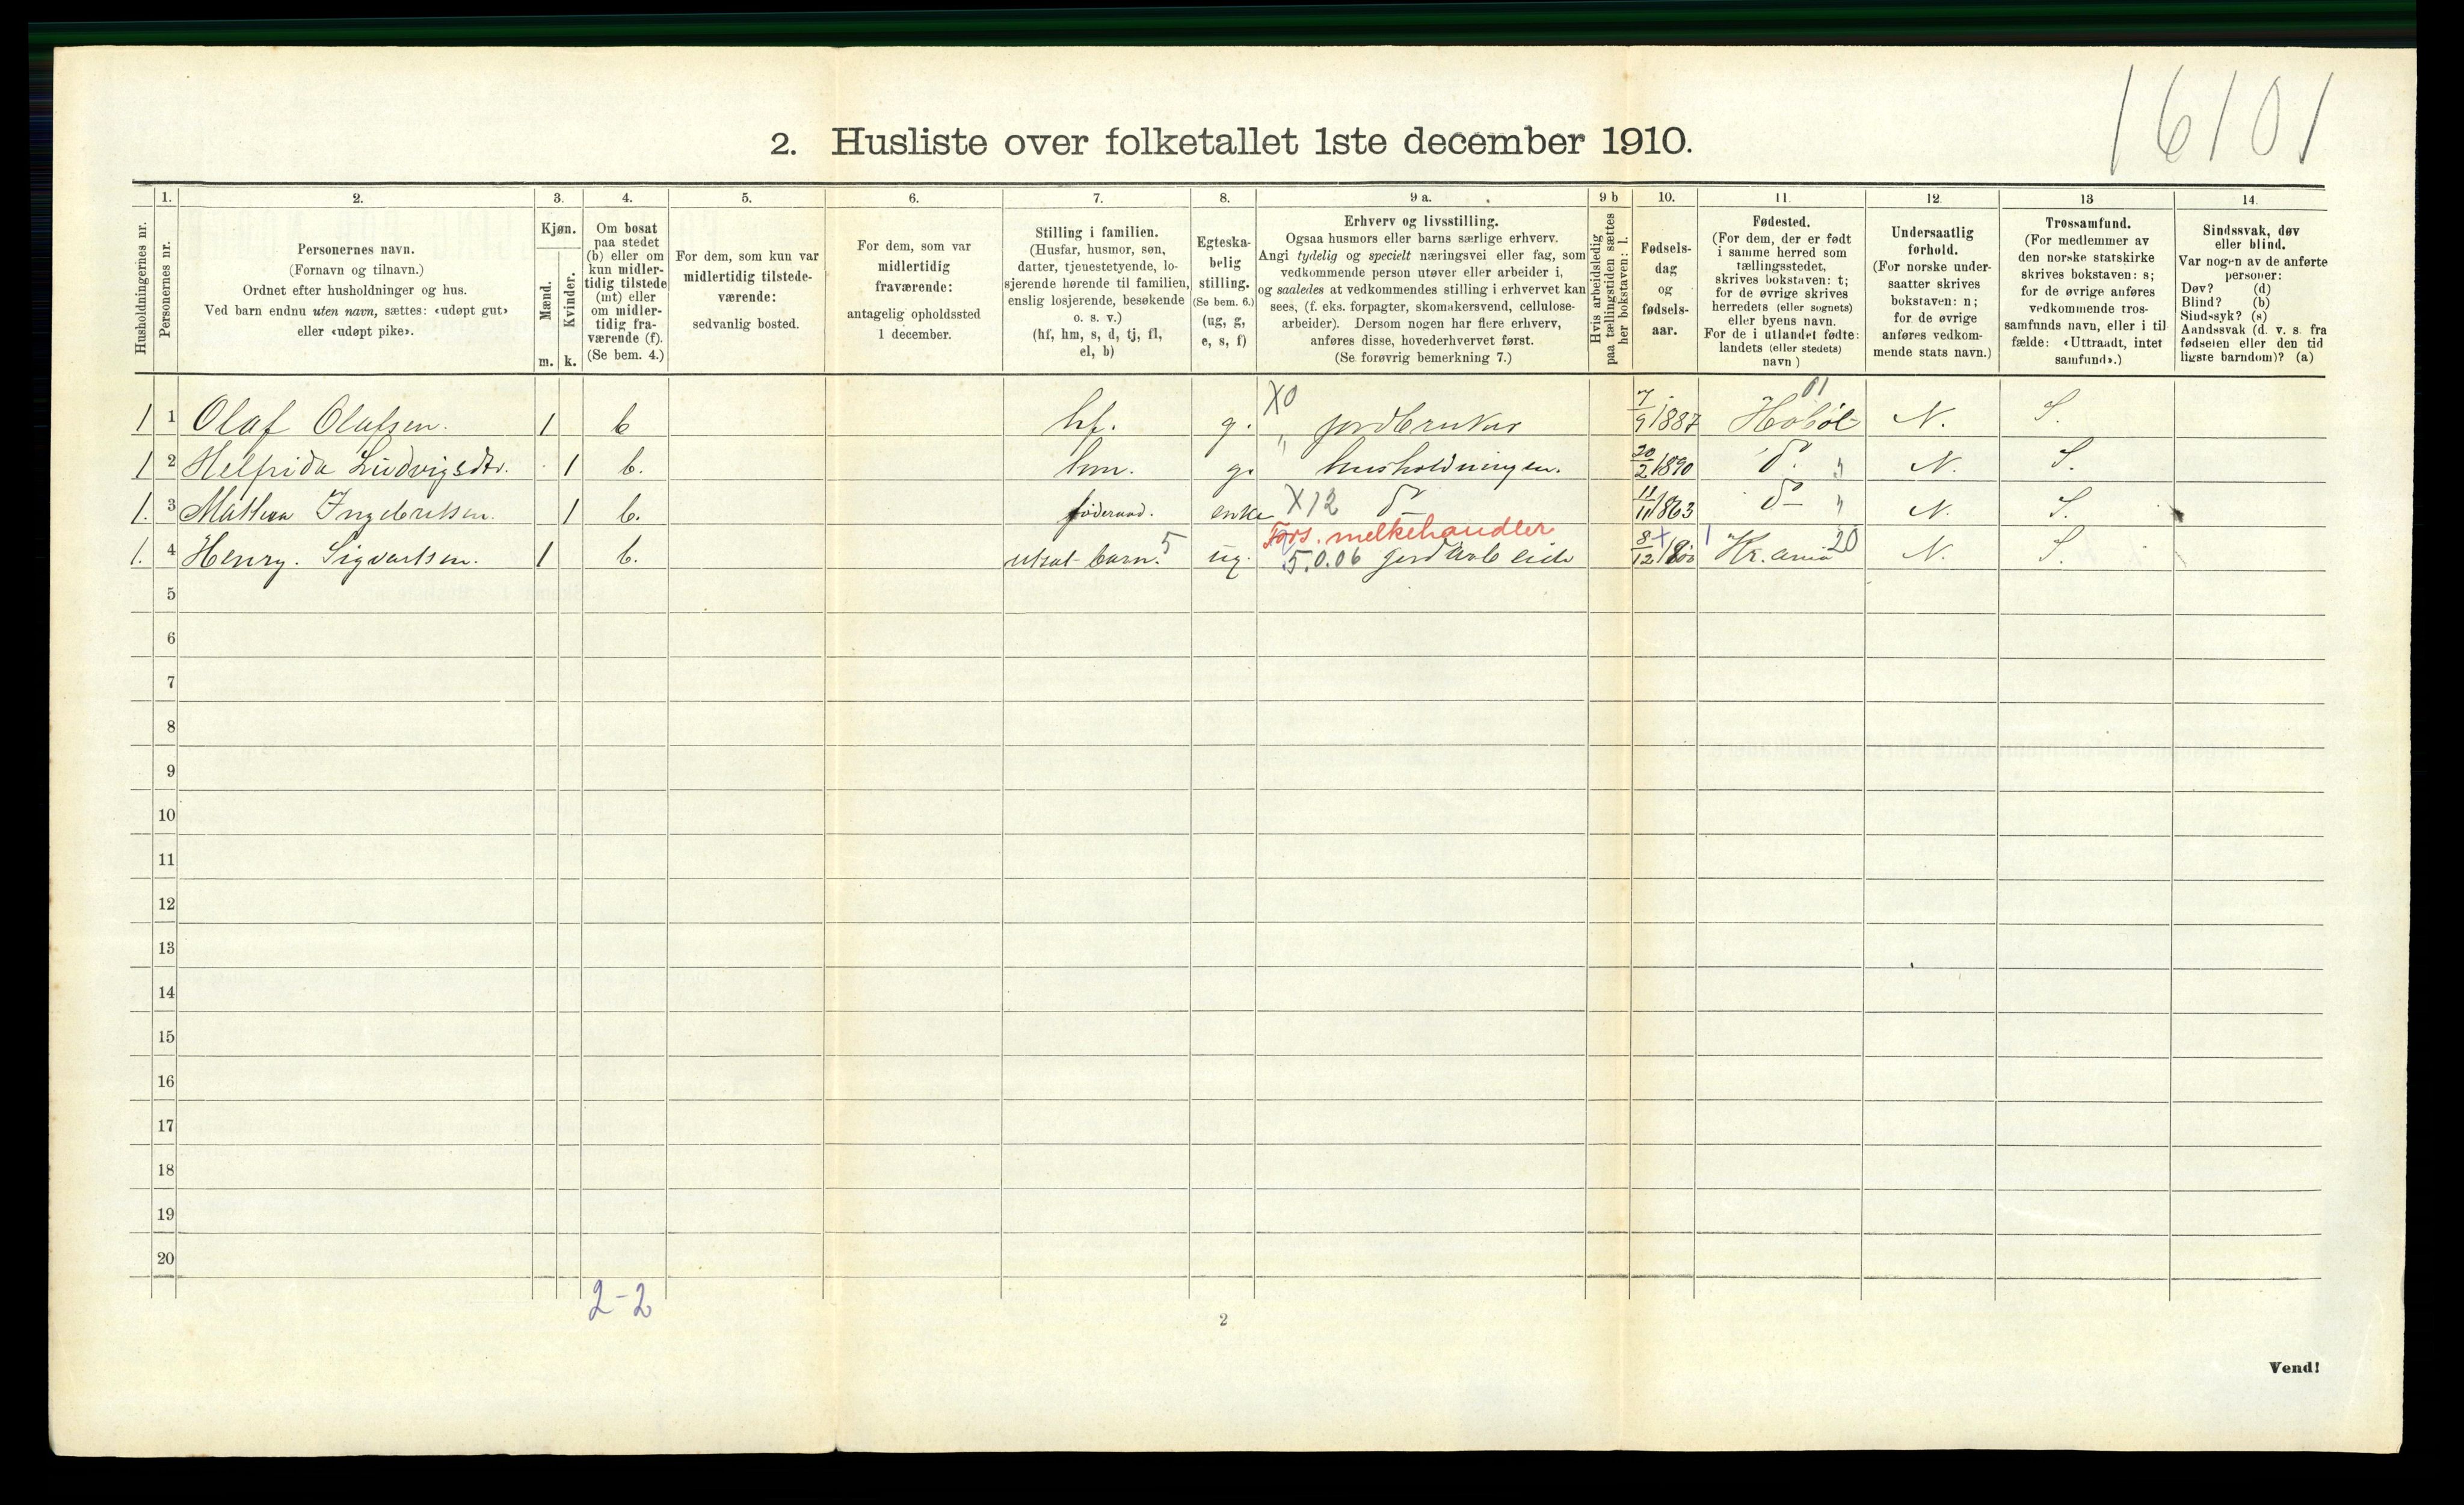 16101
2. Husliste over folketallet 1ste december 1910.
Husholdningernes nr.
1.
Personernes nr.
2.
Personernes navn.
(Fornavn og tilnavn.)
Ordnet efter husholdninger og hus.
Ved barn endnu uten navn, sættes: «udøpt gut»
eller «udøpt pike».
3.
Kjøn.
Mænd.
Kvinder.
m. k.
4.
Om bosat
paa stedet
(b) eller om
kun midler-
tidig tilstede
(mt) eller
om midler-
tidig fra-
værende (f).
(Se bem. 4.)
5.
For dem, som kun var
midlertidig tilstede-
værende:
sedvanlig bosted.
6.
For dem, som var
midlertidig
fraværende:
antagelig opholdssted
1 december.
7.
Stilling i familien.
(Husfar, husmor, søn,
datter, tjenestetyende, lo-
sjerende hørende til familien,
enslig losjerende, besøkende
o. s. v.)
(hf, hm, s, d, tj, fl,
el, b)
8.
Egteska-
belig
stilling.
(Se bem. 6.)
(ug, g,
e, s, f)
9 a.
Erhverv og livsstilling.
Ogsaa husmors eller barns særlige erhverv.
Angi tydelig og specielt næringsvei eller fag, som
vedkommende person utøver eller arbeider i,
og saaledes at vedkommendes stilling i erhvervet kan
sees, (f. eks. forpagter, skomakersvend, cellulose-
arbeider). Dersom nogen har flere erhverv,
anføres disse, hovederhvervet først.
(Se forøvrig bemerkning 7.)
9 b
Hvis arbeidsledig
paa tællingstiden sættes
her bokstaven: l.
10.
Fødsels-
dag
og
fødsels-
aar.
11.
Fødested.
(For dem, der er født
i samme herred som
tællingsstedet,
skrives bokstaven: t;
for de øvrige skrives
herredets (eller sognets)
eller byens navn.
For de i utlandet fødte:
landets (eller stedets)
navn)
12.
Undersaatlig
forhold.
(For norske under-
saatter skrives
bokstaven: n;
for de øvrige
anføres vedkom-
mende stats navn.)
13
Trossamfund.
(For medlemmer av
den norske statskirke
skrives bokstaven: s;
for de øvrige anføres
vedkommende tros-
samfunds navn, eller i til-
fælde: «Uttraadt, intet
samfund».)
14.
Sindssvak, døv
eller blind.
Var nogen av de anførte
personer:
Døv? (d)
Blind? (b)
Sindssyk? (s)
Aandssvak (d. v. s. fra
fødselen eller den tid-
ligste barndom)? (a)
X0 01
1 1 Olaf Olafsen. 1 b hf. g. " jordbruker 7/9 1887 Hobøl N. S.
1 2 Helfrida Ludvigsdtr. 1 b. hm. g. husholdningen. 20/2 1890 do. " N. S.
1. 3 Mathea Ingebretsen. 1 b. föderaad. enke X12 do 11/11 1863 do " N. S.
Fors. melkehandler
1. 4 Henry. Sigvartsen. 1 b. utsat barn. 5 ug. 5.0.06 jordarbeide 8/12 1900 Kr.ania 20 N. S.
5
6
7
8
9
10
11
12
13
14
15
16
17
18
19
20
2-2
2
Vend!